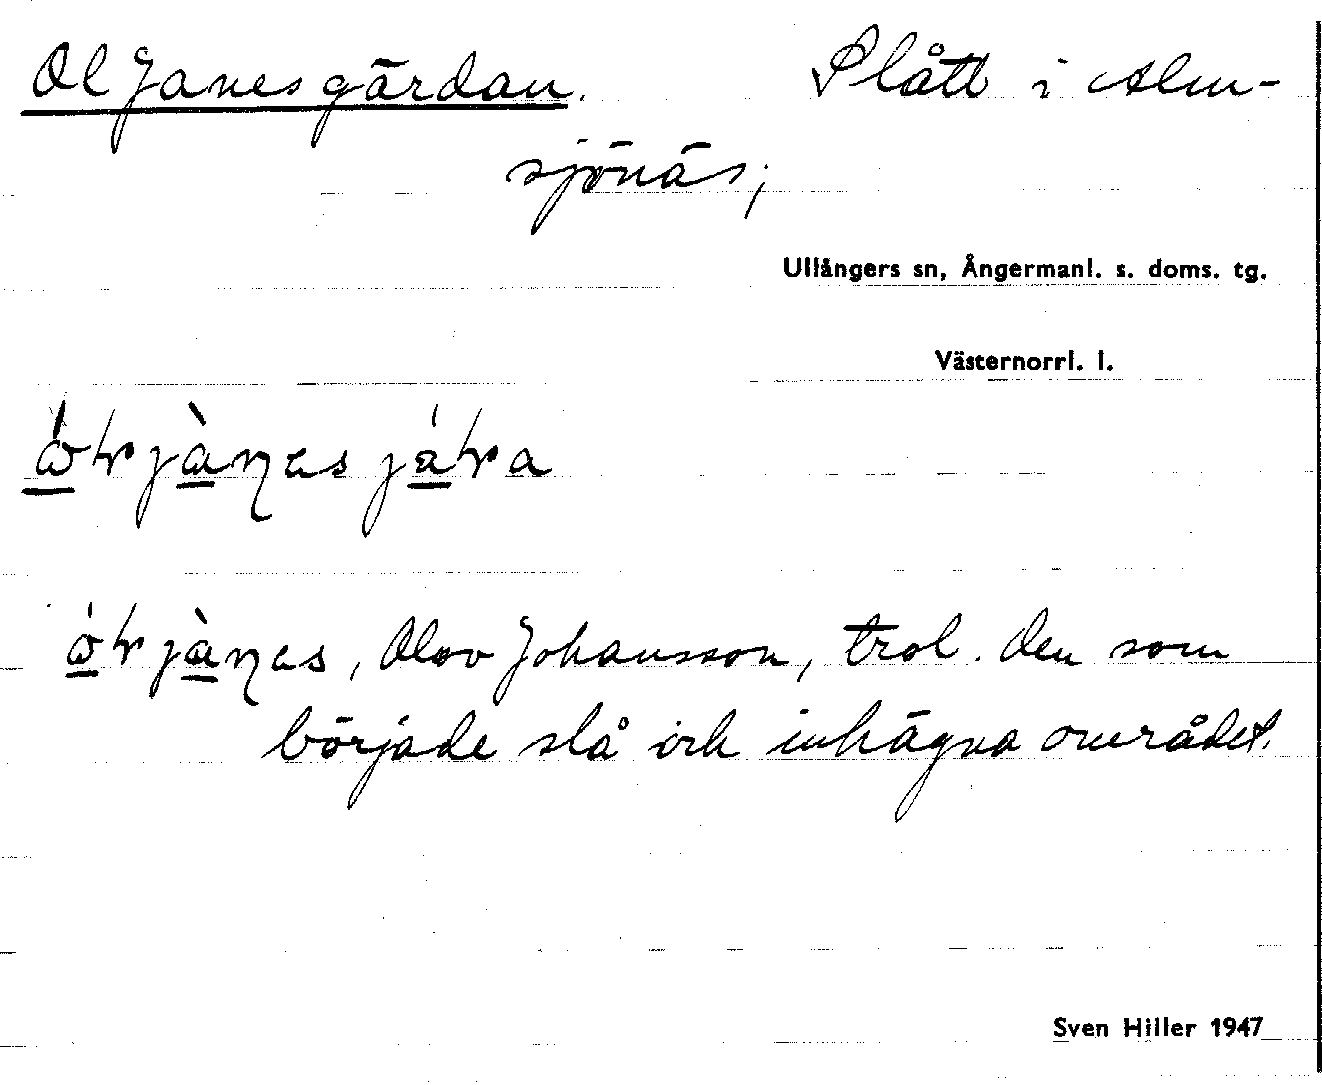 Ol Janesgärdan. Slått i Alm-
sjönäs;
Ullångers sn, Ångermanl. s. doms. tg.
Västernorrl. l.
, Olov Johansson, trol. den som
började slå och inhägna området.
Sven Hiller 1947